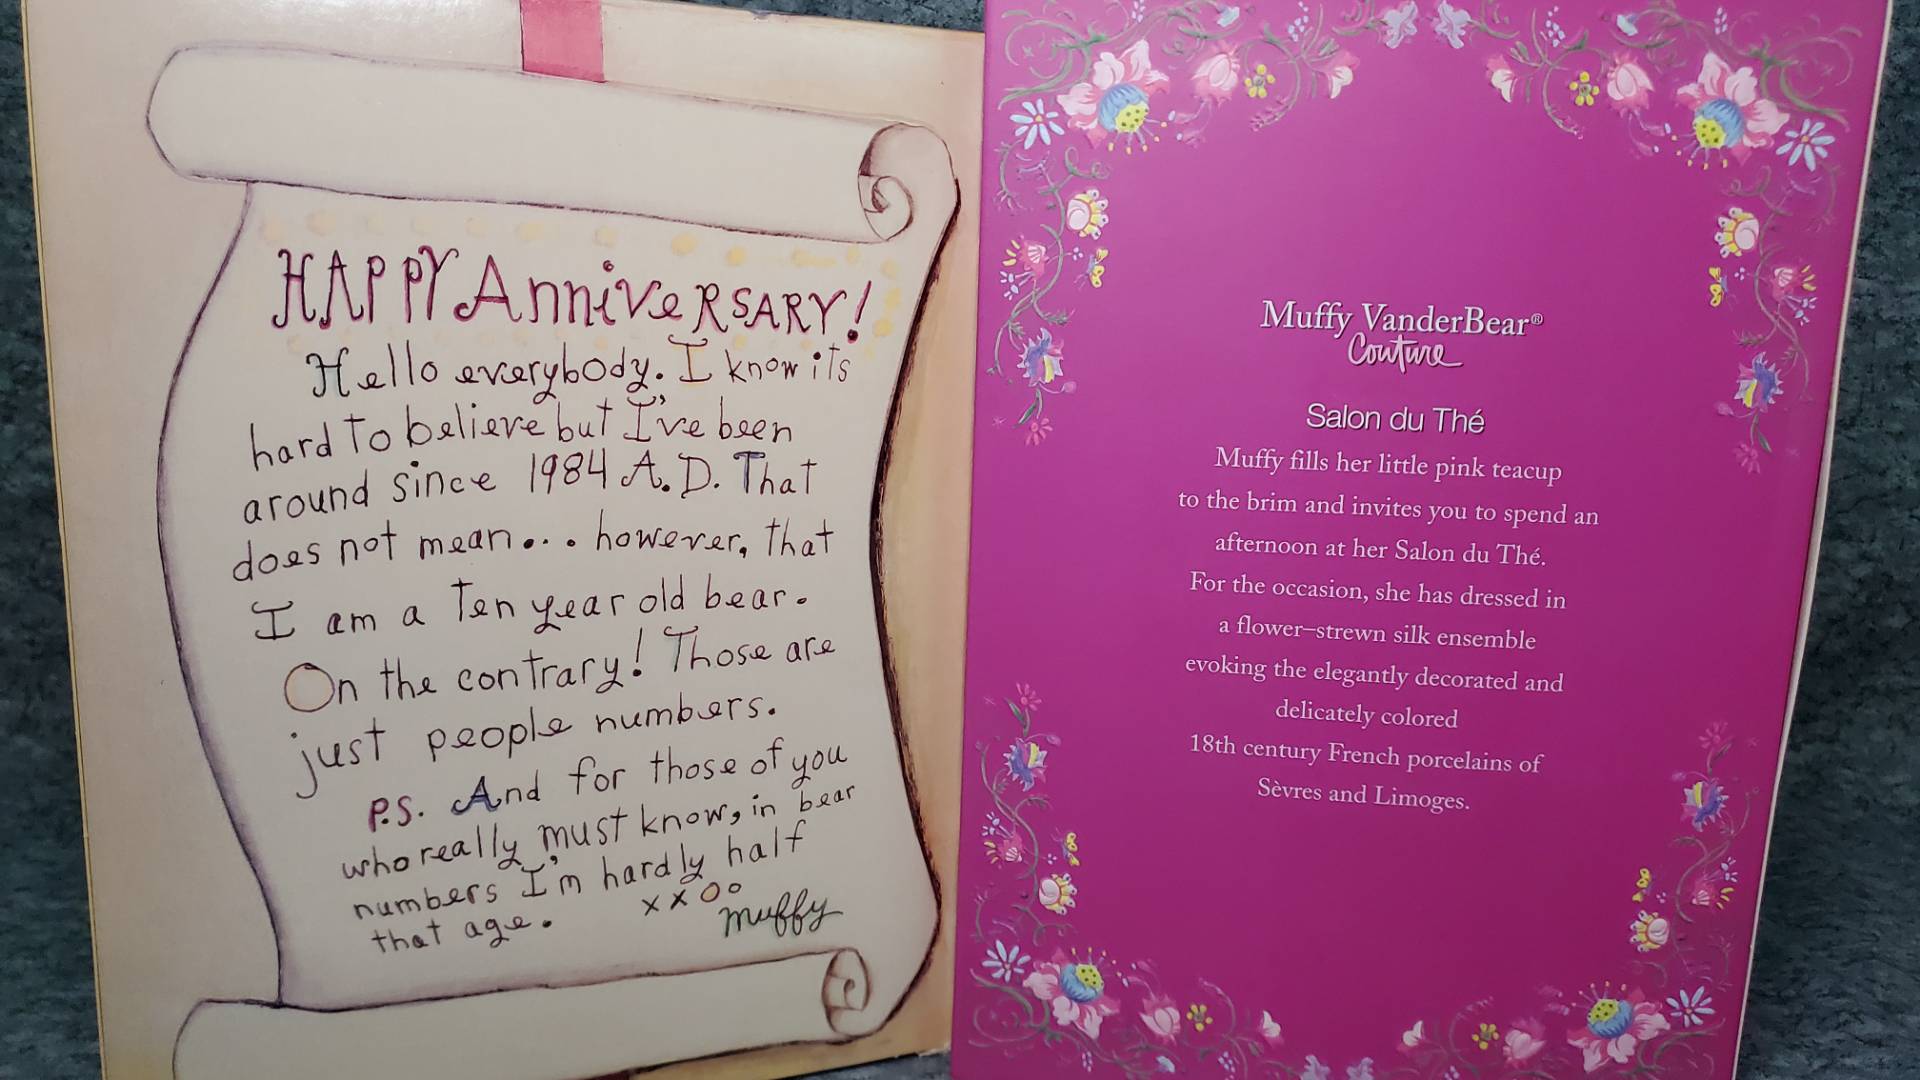 HAPPY AnniveRSARY!
Hello everybody. I know its
hard to believe but I've been
around since 1984 A.D. That
does not mean... however, that
I am a Ten year old bear.
On the contrary! Those are
just people numbers.
P.S. And for those of you
who really must know, in bear
numbers I'm hardly half
that age.
xxoo
Muffy
Muffy VanderBear®
Couture
Salon du Thé
Muffy fills her little pink teacup
to the brim and invites you to spend an
afternoon at her Salon du Thé.
For the occasion, she has dressed in
a flower–strewn silk ensemble
evoking the elegantly decorated and
delicately colored
18th century French porcelains of
Sèvres and Limoges.